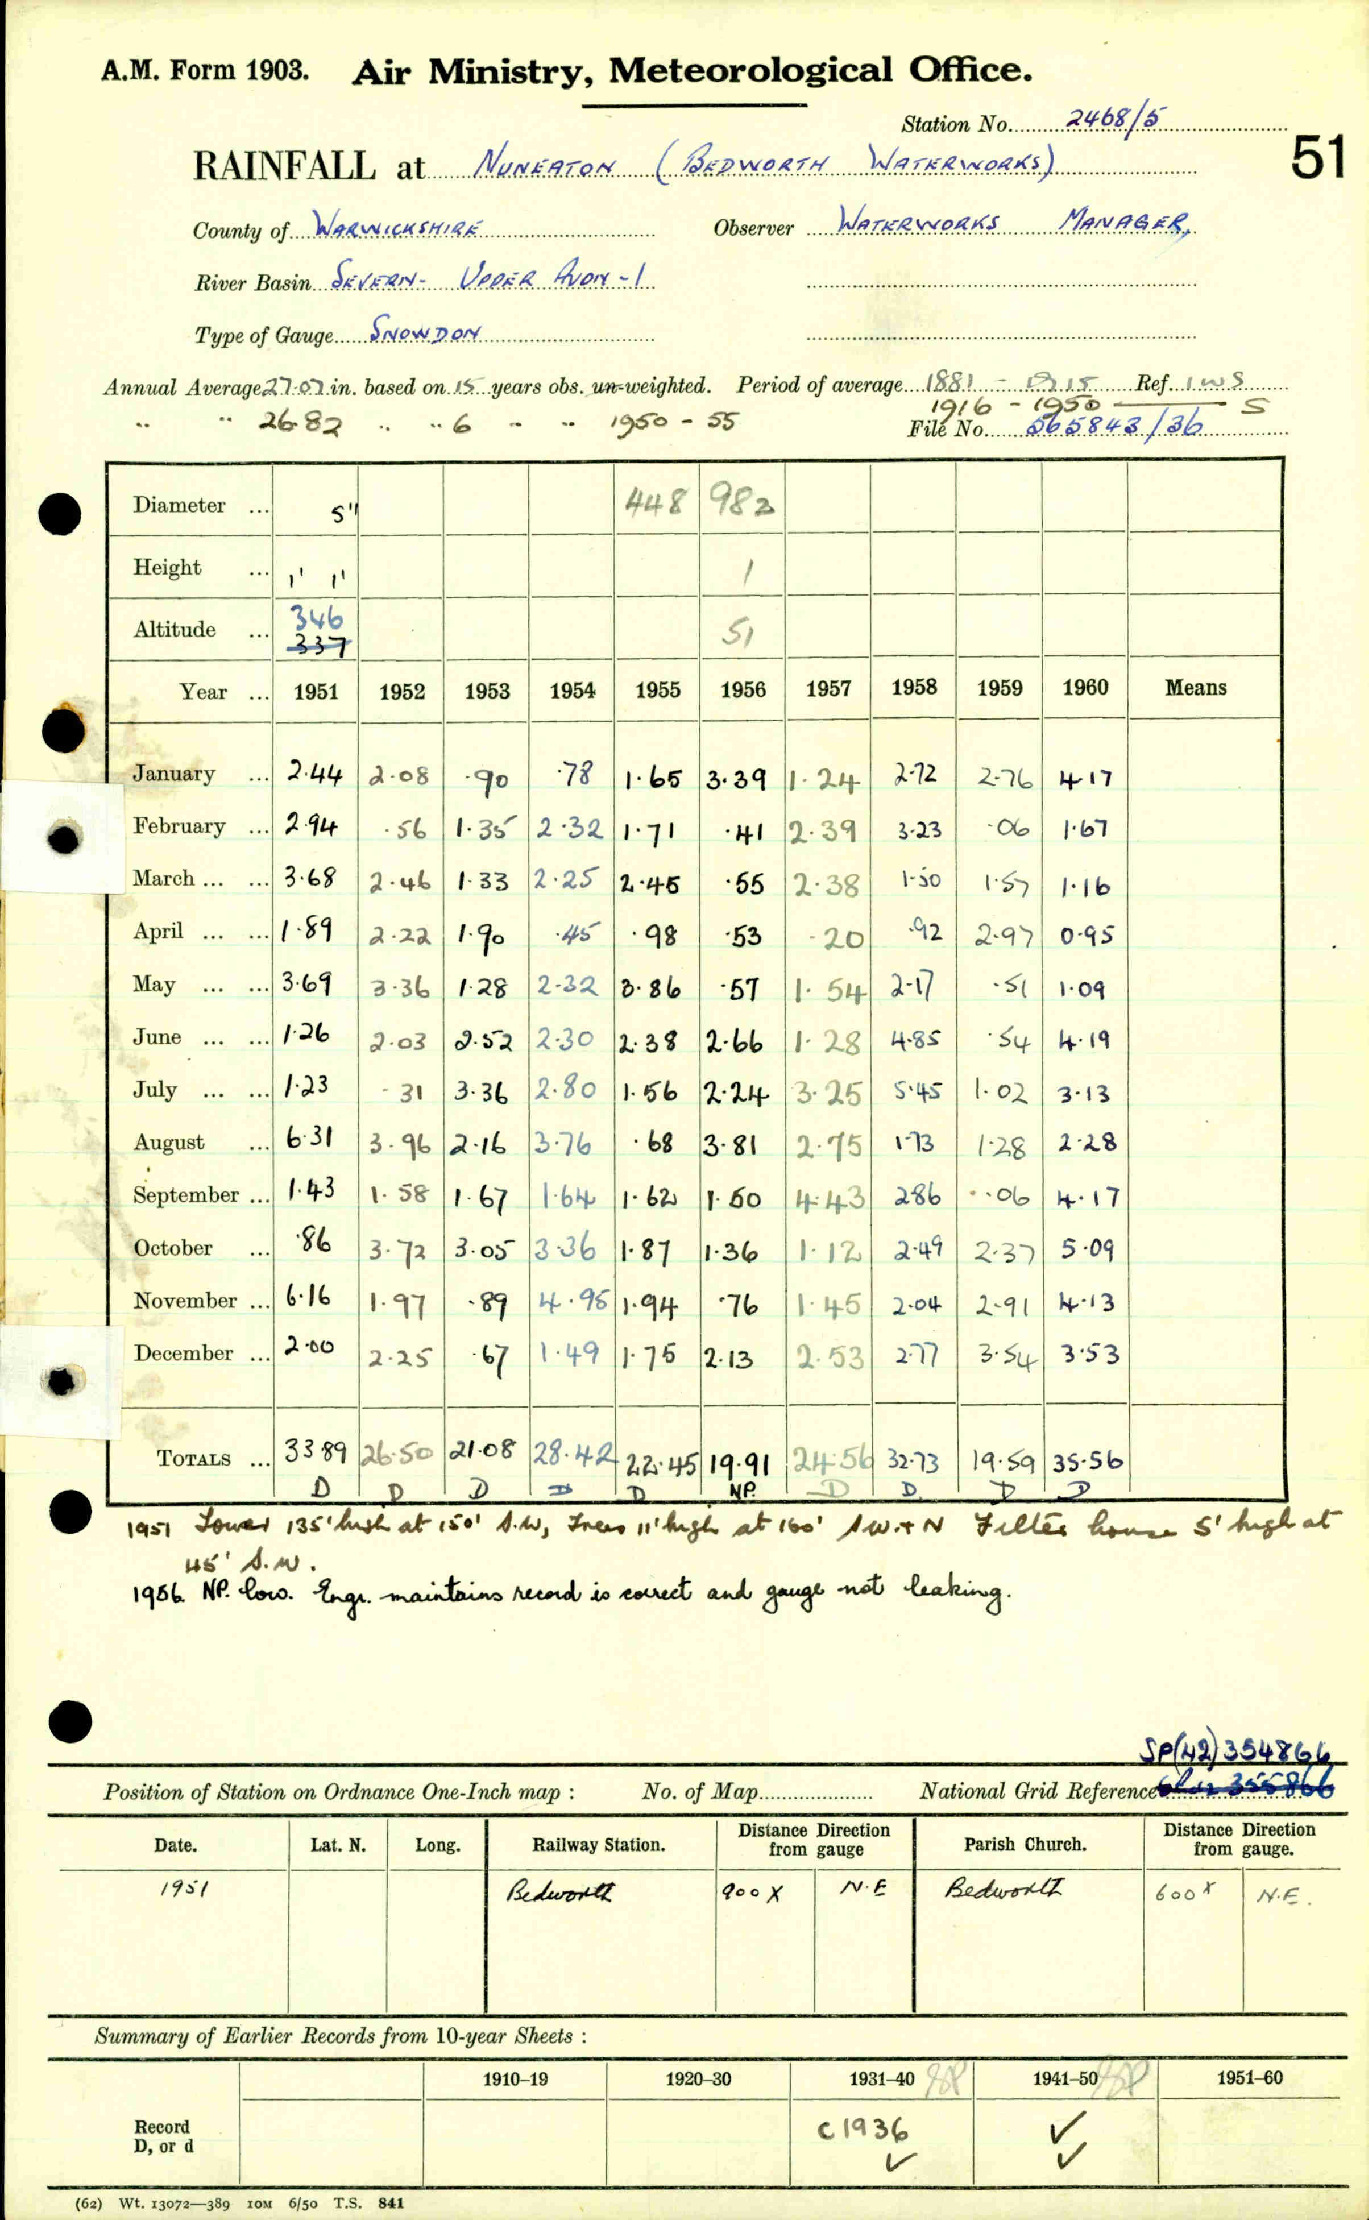 A.M. Form 1903. Air Ministry, Meteorological Office.
Station No. 2468/5
51
RAINFALL at NUNEATON (BEDWORTH WATERWORKS)
County of WARWICKSHIRE Observer WATERWORKS MANAGER,
River Basin SEVERN - UPPER AVON - 1
Type of Gauge SNOWDON
Annual Average 27.07 in. based on 15 years obs. un-weighted. Period of average 1881 - 1915 Ref. IWS
" " 26.82 " " 6 " " 1950 - 55 1916 - 1950 S
File No. 565843/36
Diameter ... 5" 448 982
Height ... 1' 1' 1
Altitude ... 346 51
337
Year ... 1951 1952 1953 1954 1955 1956 1957 1958 1959 1960 Means
January ... 2.44 2.08 .90 .78 1.65 3.39 1.24 2.72 2.76 4.17
February ... 2.94 .56 1.35 2.32 1.71 .41 2.39 3.23 .06 1.67
March ... ... 3.68 2.46 1.33 2.25 2.45 .55 2.38 1.50 1.57 1.16
April ... ... 1.89 2.22 1.90 .45 .98 .53 .20 .92 2.97 0.95
May ... ... 3.69 3.36 1.28 2.32 3.86 .57 1.54 2.17 .51 1.09
June ... ... 1.26 2.03 2.52 2.30 2.38 2.66 1.28 4.85 .54 4.19
July ... ... 1.23 .31 3.36 2.80 1.56 2.24 3.25 5.45 1.02 3.13
August ... 6.31 3.96 2.16 3.76 .68 3.81 2.75 1.73 1.28 2.28
September ... 1.43 1.58 1.67 1.64 1.62 1.50 4.43 2.86 .06 4.17
October ... .86 3.72 3.05 3.36 1.87 1.36 1.12 2.49 2.37 5.09
November ... 6.16 1.97 .89 4.95 1.94 .76 1.45 2.04 2.91 4.13
December ... 2.00 2.25 .67 1.49 1.75 2.13 2.53 2.77 3.54 3.53
TOTALS ... 33.89 26.50 21.08 28.42 22.45 19.91 24.56 32.73 19.59 35.56
D D D D D NP. D D. D D
1951 Tower 135' high at 150' S.W, Trees 11' high at 160' SW.+N Filter house 5' high at
45' S.W.
1956. NP. low. Engr. maintains record is correct and gauge not leaking.
SP(42)354866
Position of Station on Ordnance One-Inch map : No. of Map National Grid Reference 355866
Date. Lat. N. Long. Railway Station. Distance from gauge Direction Parish Church. Distance from gauge. Direction
1951 Bedworth 900 x N.E Bedworth 600 x N.E.
Summary of Earlier Records from 10-year Sheets :
1910–19 1920–30 1931–40 1941–50 1951–60
Record c1936 ✓
D, or d ✓ ✓
(62) Wt. 13072—389 10M 6/50 T.S. 841